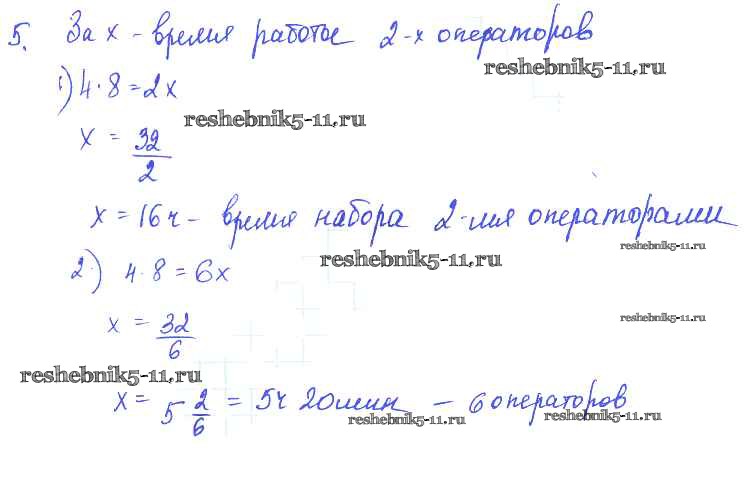 5. За х - время работы 2-х операторов
reshebnik5-11.ru
1) 4·8 = 2х
reshebnik5-11.ru
х = 32/2
х = 16 ч - время набора 2-мя операторами
reshebnik5-11.ru
reshebnik5-11.ru
2) 4·8 = 6х
х = 32/6
reshebnik5-11.ru
reshebnik5-11.ru
х = 5 2/6 = 5ч 20мин - 6 операторов
reshebnik5-11.ru
reshebnik5-11.ru